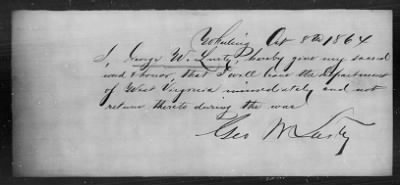 Wheeling Oct 8th 1864
I, George W. Lurty, hereby give my sacred
word & honor, that I will leave the department
of West Virginia immediately and not
return thereto during the war
Geo W Lurty